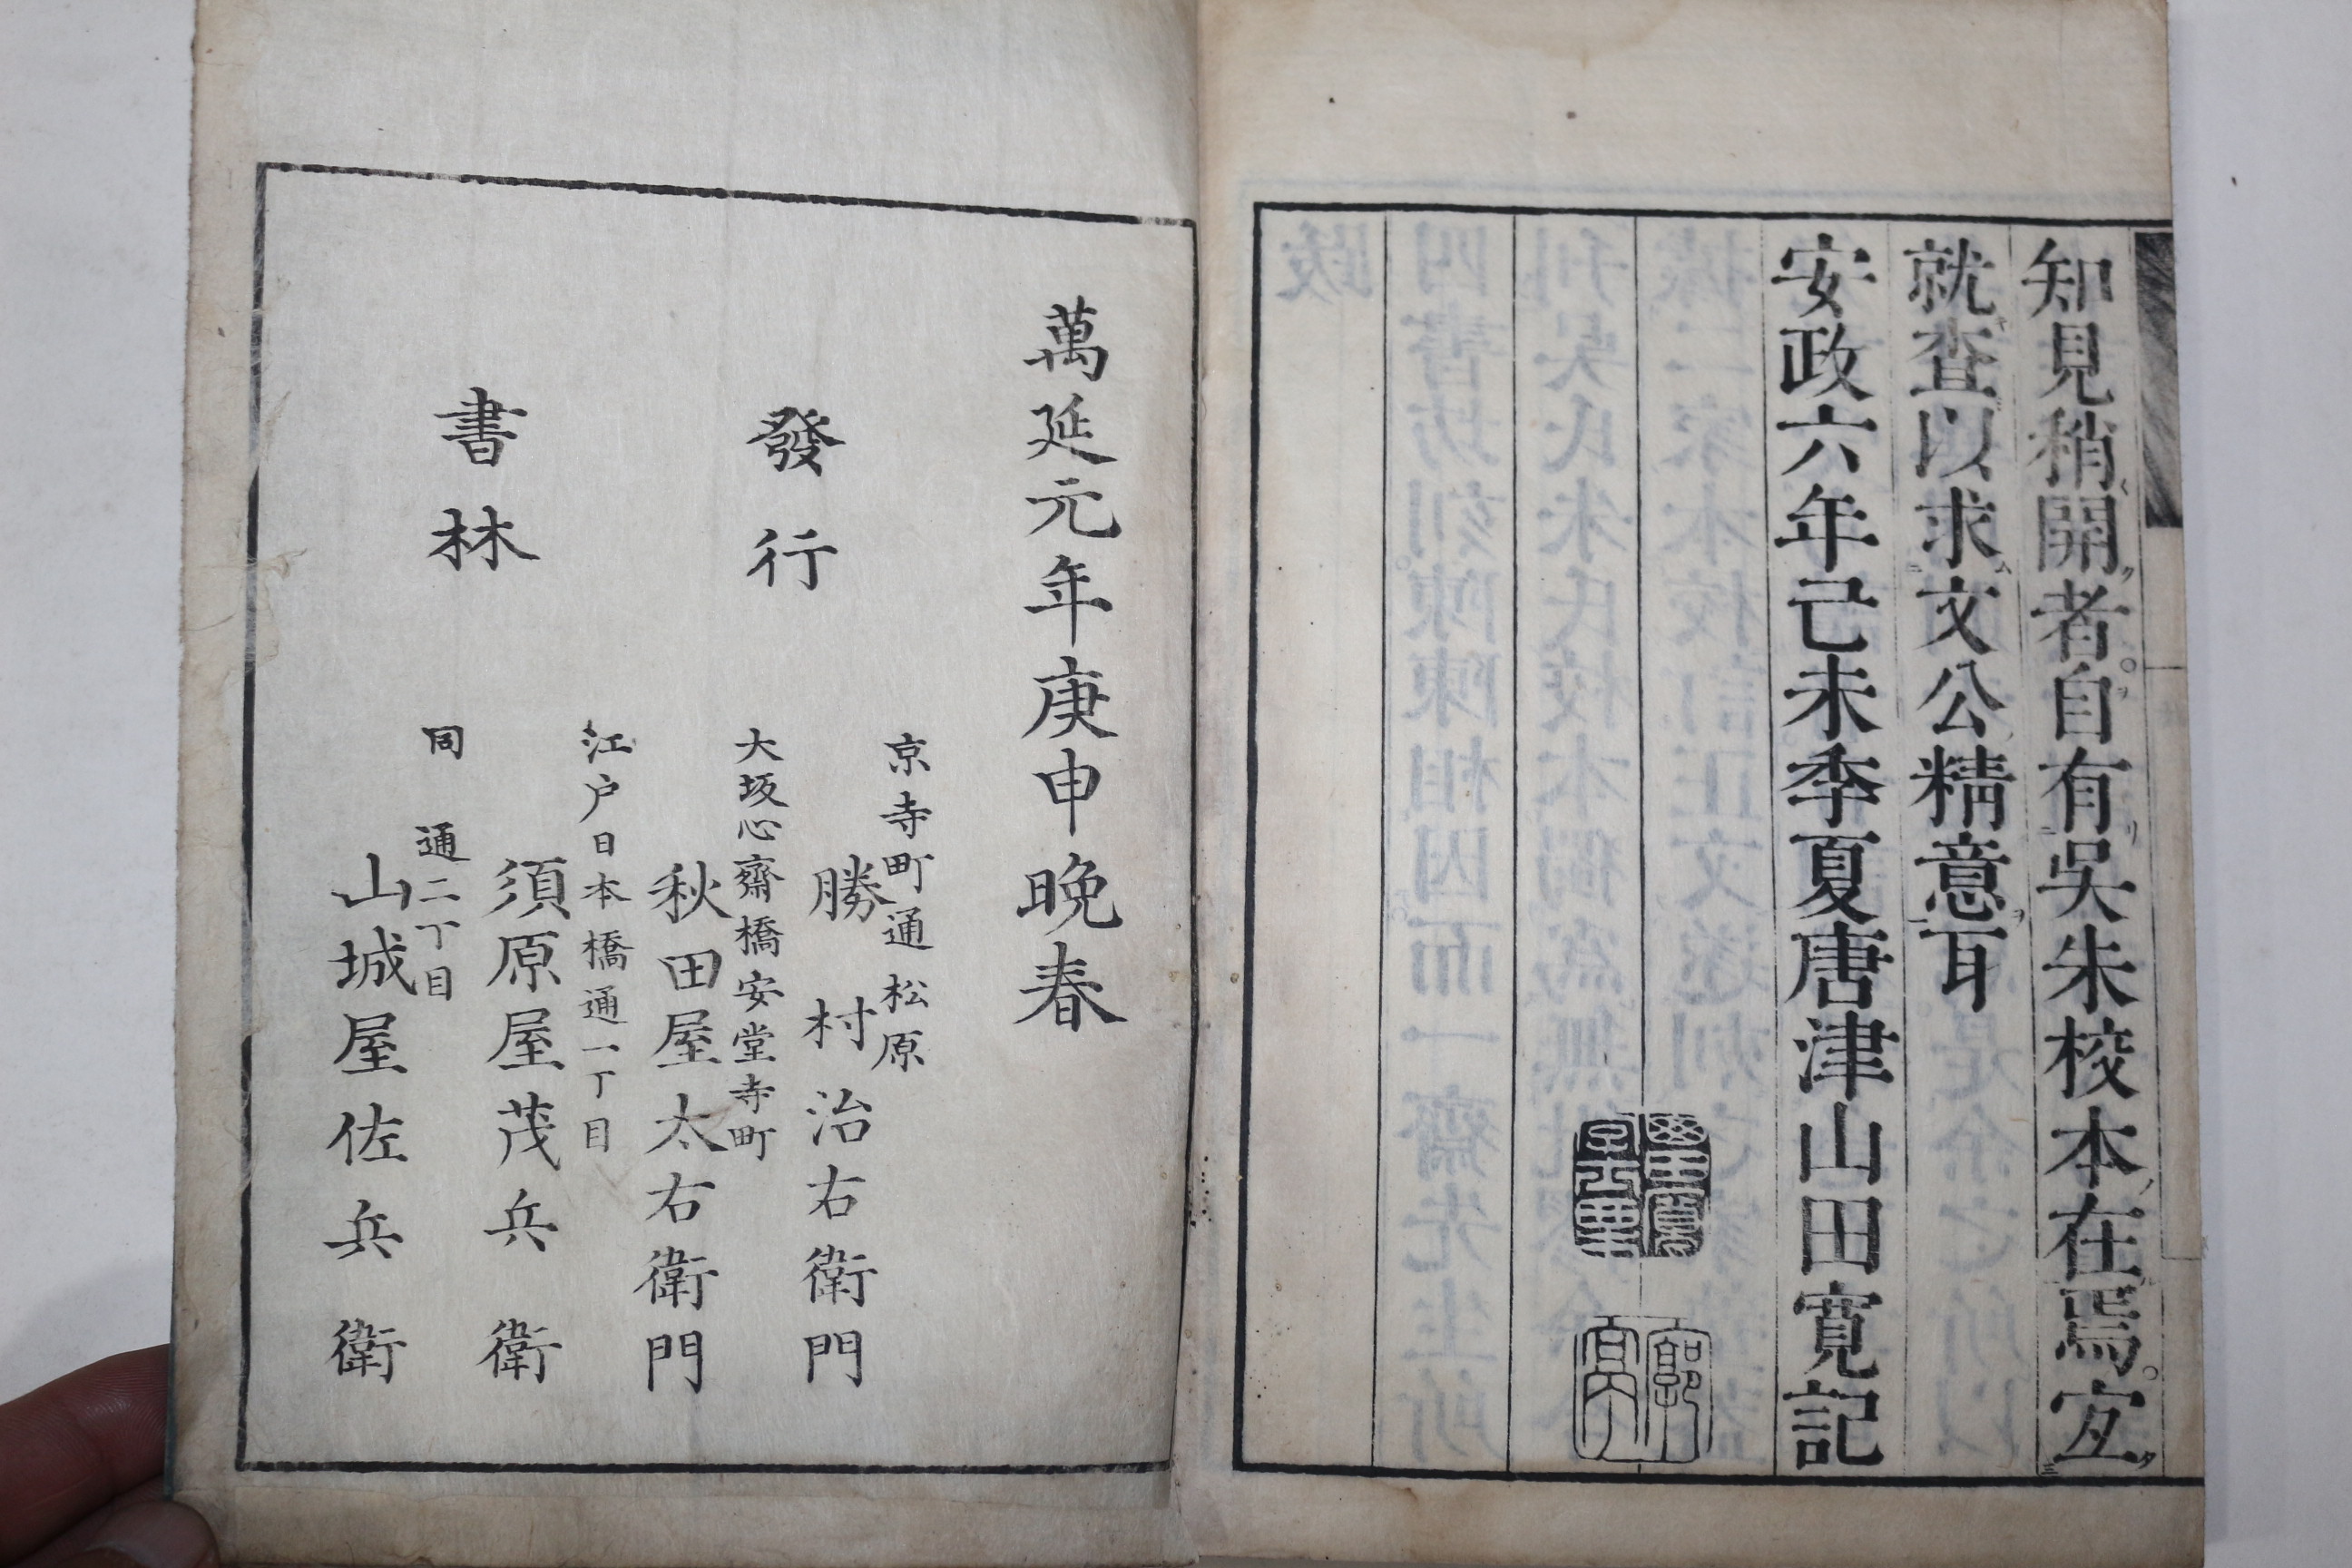 知見稍開者。自有吳朱校本在焉。宜
就查以求文公精意耳
安政六年己未季夏唐津山田寬記
萬延元年庚申晩春
發行
書林
京寺町通松原
勝村治右衛門
大坂心齋橋安堂寺町
秋田屋太右衛門
江戸日本橋通一丁目
須原屋茂兵衛
同 通二丁目
山城屋佐兵衛